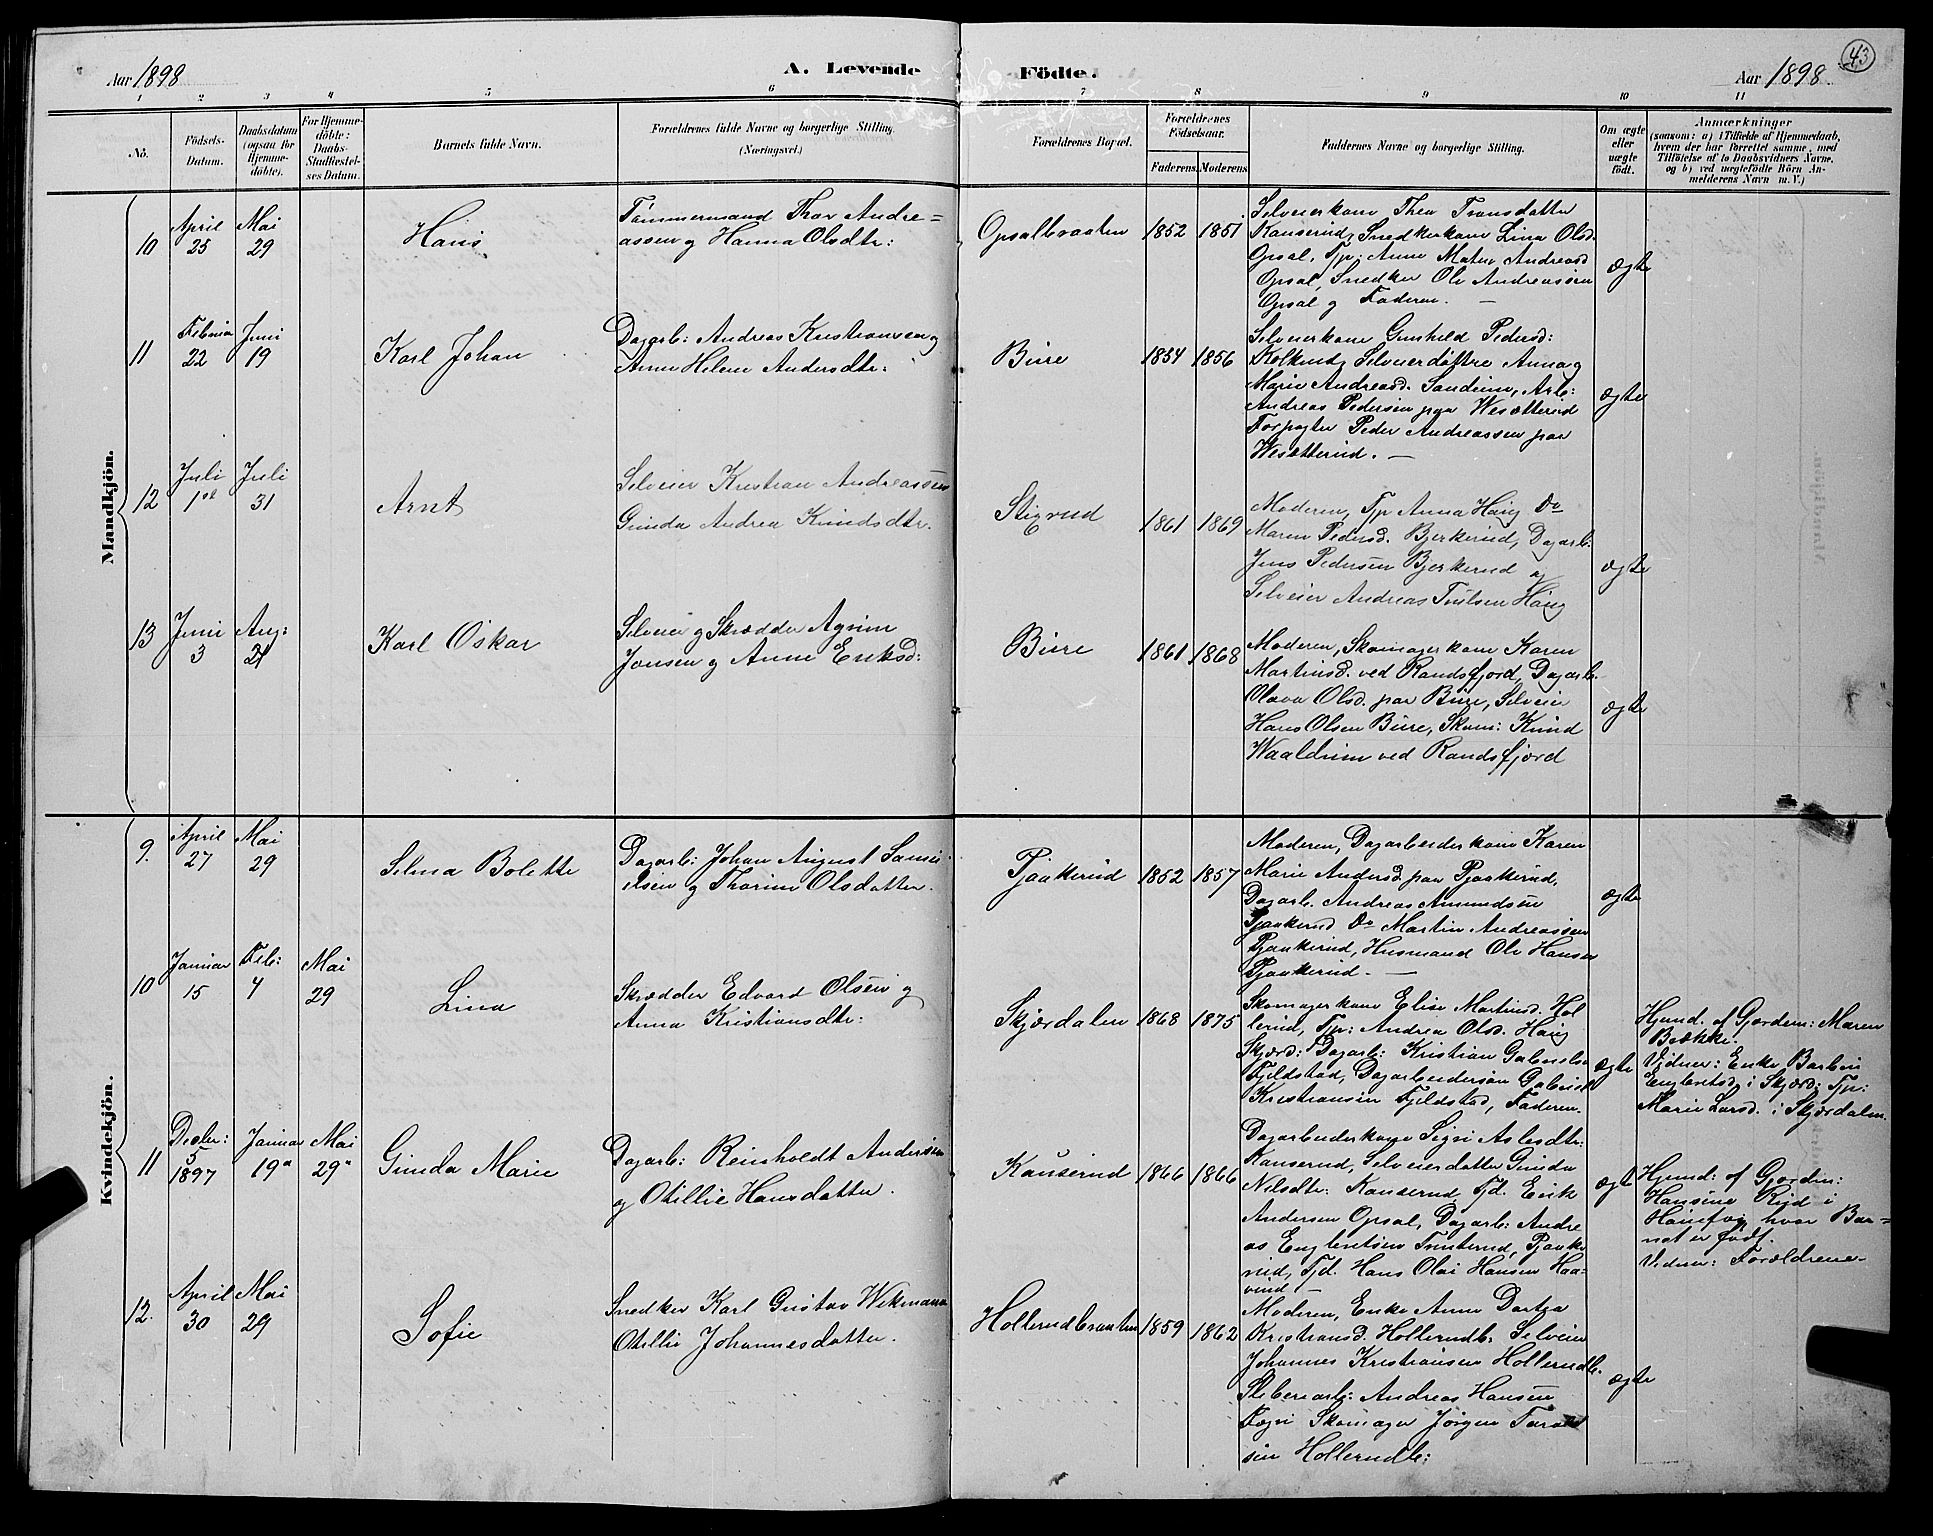 Aar 1898
A. Levende Födte.
Aar 1898
43
1 2 3 4 5 6 7 8 9 10 11
No.
Födsels-
Datum.
Daabsdatum
(ogsaa for
Hjemme-
döbte).
For Hjemme-
döbte:
Daabs-
Stadfæstel-
ses Datum.
Barnets fulde Navn.
Forældrenes fulde Navne og borgerlige Stilling.
(Næringsvei.)
Forældrenes Bopæl.
Forældrenes
Födselsaar.
Faderens. Moderens.
Faddernes Navne og borgerlige Stilling.
Om ægte
eller
uægte
födt.
Anmærkninger
(saasom: a) i Tilfælde af Hjemmedaab,
hvem der har forrettet samme, med
Tilföielse af to Daabsvidners Navne,
og b) ved uægtefödte Börn An-
melderens Navn m. V.)
Mandkjön.
10
April
25
Mai
29
Hans
Tømmermand Thor Andre=
assen og Hanna Olsdtr:
Opsalbraaten
1852 1851
Selveierkone Thea Transdatter
Kanserud, Snedkerkone Lina Olsd.
Opsal, Tjp: Anne Mathea Andreasd
Opsal, Snedker Ole Andreassen
Opsal og Faderen. —
ægte
11
Februar
22
Juni
19
Karl Johan
Dagarb: Andreas Kristiansen og
Anne Helene Andersdtr:
Bure
1854 1856
Selveierkone Gunhild Pedersd:
Selveierdøttre Anna og
Marie Andreasd. Arb:
Andreas Pedersen paa Wesætterud
Forpagter Peder Andreassen paa
Wesætterud. —
ægte
12
Juli
1st
Juli
31
Arnt
Selveier Kristian Andreassen
Gunda Andrea Knudsdtr.
Stixrud
1861 1869
Moderen, Tjp Anna Haug Do
Maren Pedersd. Bjerkerud, Dagarb.
Jens Pedersen Bjerkerud og
Selveier Andreas Trulsen Haug
ægte
13
Juni
3
Aug:
21
Karl Oskar
Selveier og Skrædder Agrim
Jonsen og Anne Eriksd:
Bure
1861 1868
Moderen, Skomagerkone Karen
Martinsd. ved Randsfjord, Dagarb.
Olava Olsd. paa Bure, Selveier
Hans Olsen Bure, Skom: Knud
Waaldrim ved Randsfjord
ægte
Kvindekjön.
9.
April
27
Mai
29
Selma Bolette
Dagarb: Johan August Samu-
elsen og Thorine Olsdatter.
Pjaakerud
1852 1857
Moderen, Dagarbeiderkone Karen
Marie Andersd paa Pjaakerud,
Dagarb. Andreas Amundsen
Pjaakerud Do Martin Andreassen
Pjaakerud, Husmand Ole Hansen
Pjaakerud. —
ægte
10
Januar
15
Feb:
4
Mai
29
Lina
Skrædder Edvard Olsen og
Anna Kristiansdtr:
Skjærdalen
1868 1875
Skomagerkone Elise Martinsd. Hol
lerud, Tjp: Andrea Olsd. Haug
Skjærd: Dagarb: Kristian Gabrielsen
Fjeldstad, Dagarbeidersøn Gabriel
Kristiansen Fjeldstad, Faderen.
ægte
Hjemd. af Gjordem: Maren
Bække.
Vidner: Enke Barbro
Engebretsd i Skjærd: Tjp:
Marie Larsd. i Skjærdalen.
11
Decbr:
5
1897
Januar
19a
Mai
29a
Gunda Marie
Dagarb: Reinholdt Andersen
og Otillie Hansdatter.
Kanserud
1866 1866
Dagarbeiderkone Sigri Aslesdtr:
Kanserud, Selveierdatter Gunda
Nilsdtr: Kanserud, Tjd. Erik
Andersen Opsal, Dagarb: Andre
as Engebretsen Trinterud, Pjaake
rud, Tjd. Hans Olai Hansen Haa-
verud. —
ægte
Hjemd: af Gjordem:
Hansine Ryd i
Hønefos, hvor Bar=
net er født.
Vidner: Forældrene—
12.
April
30
Mai
29
Sofie
Snedker Karl Gustav Wikmann
Otillie Johannesdatter.
Hollerudbraaten
1859 1862
Moderen, Enke Anne Dortea
Kristiansd. Hollerudb: Selveier
Johannes Kristiansen Hollerudb.
Sliberiarb: Andreas Hansen
Skomager Jørgen
sen Hollerudb:
ægte